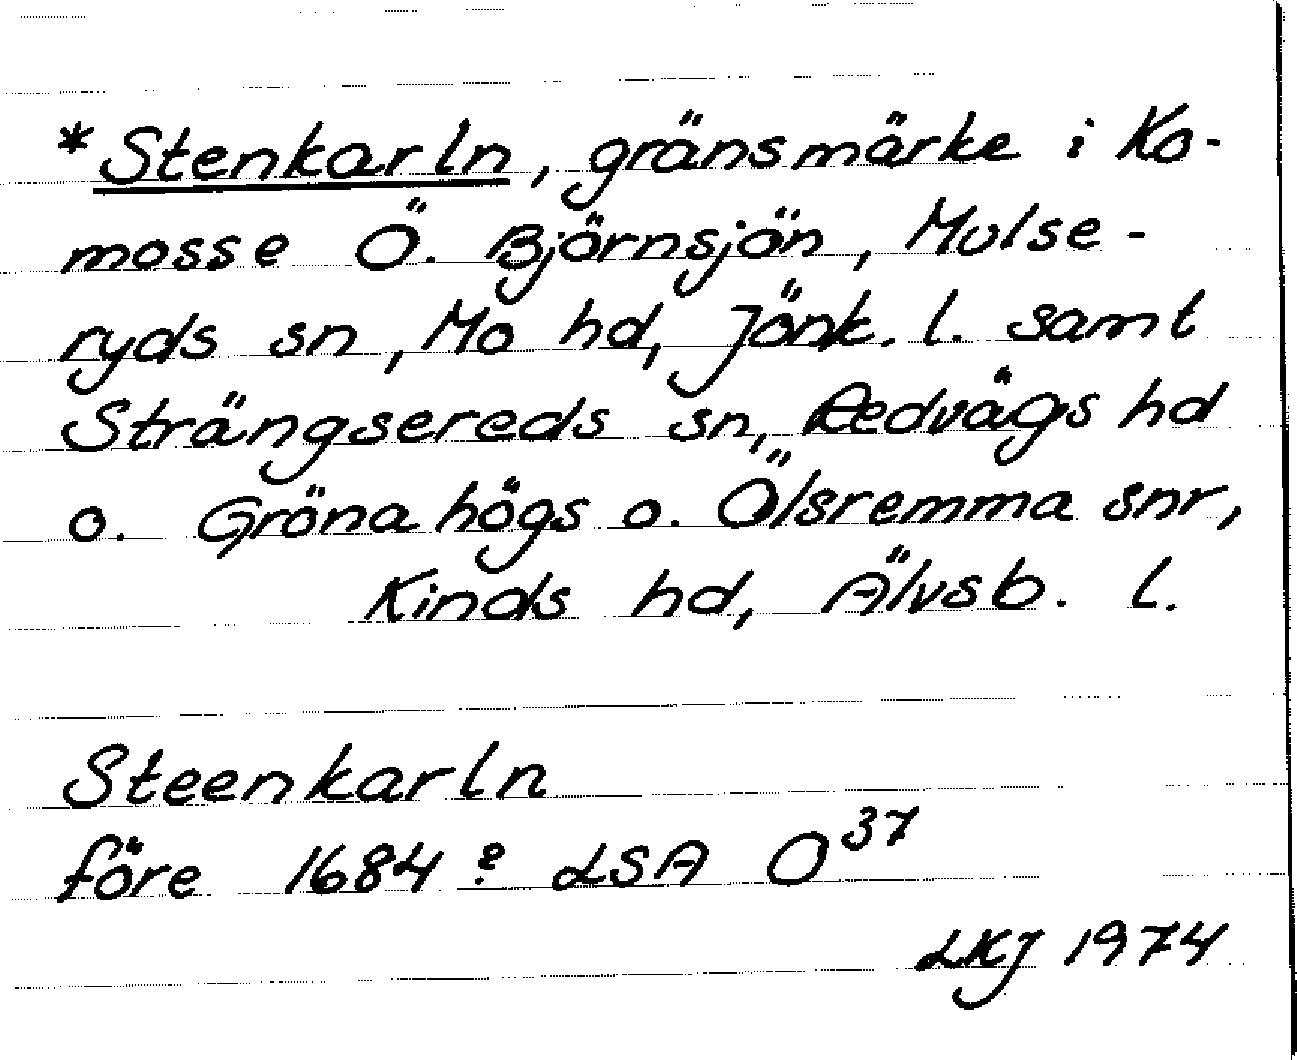 *Stenkarln, gränsmärke i Ko-
mosse Ö. Björnsjön, Mulse-
ryds sn, Mo hd, Jönk. l. samt
Strängsereds sn, Redvägs hd
o. Gröna högs o. Ölsremma snr,
Kinds hd, Älvsb. l.
Steenkarln
före 1684? LSA O³⁷
LKJ 1974